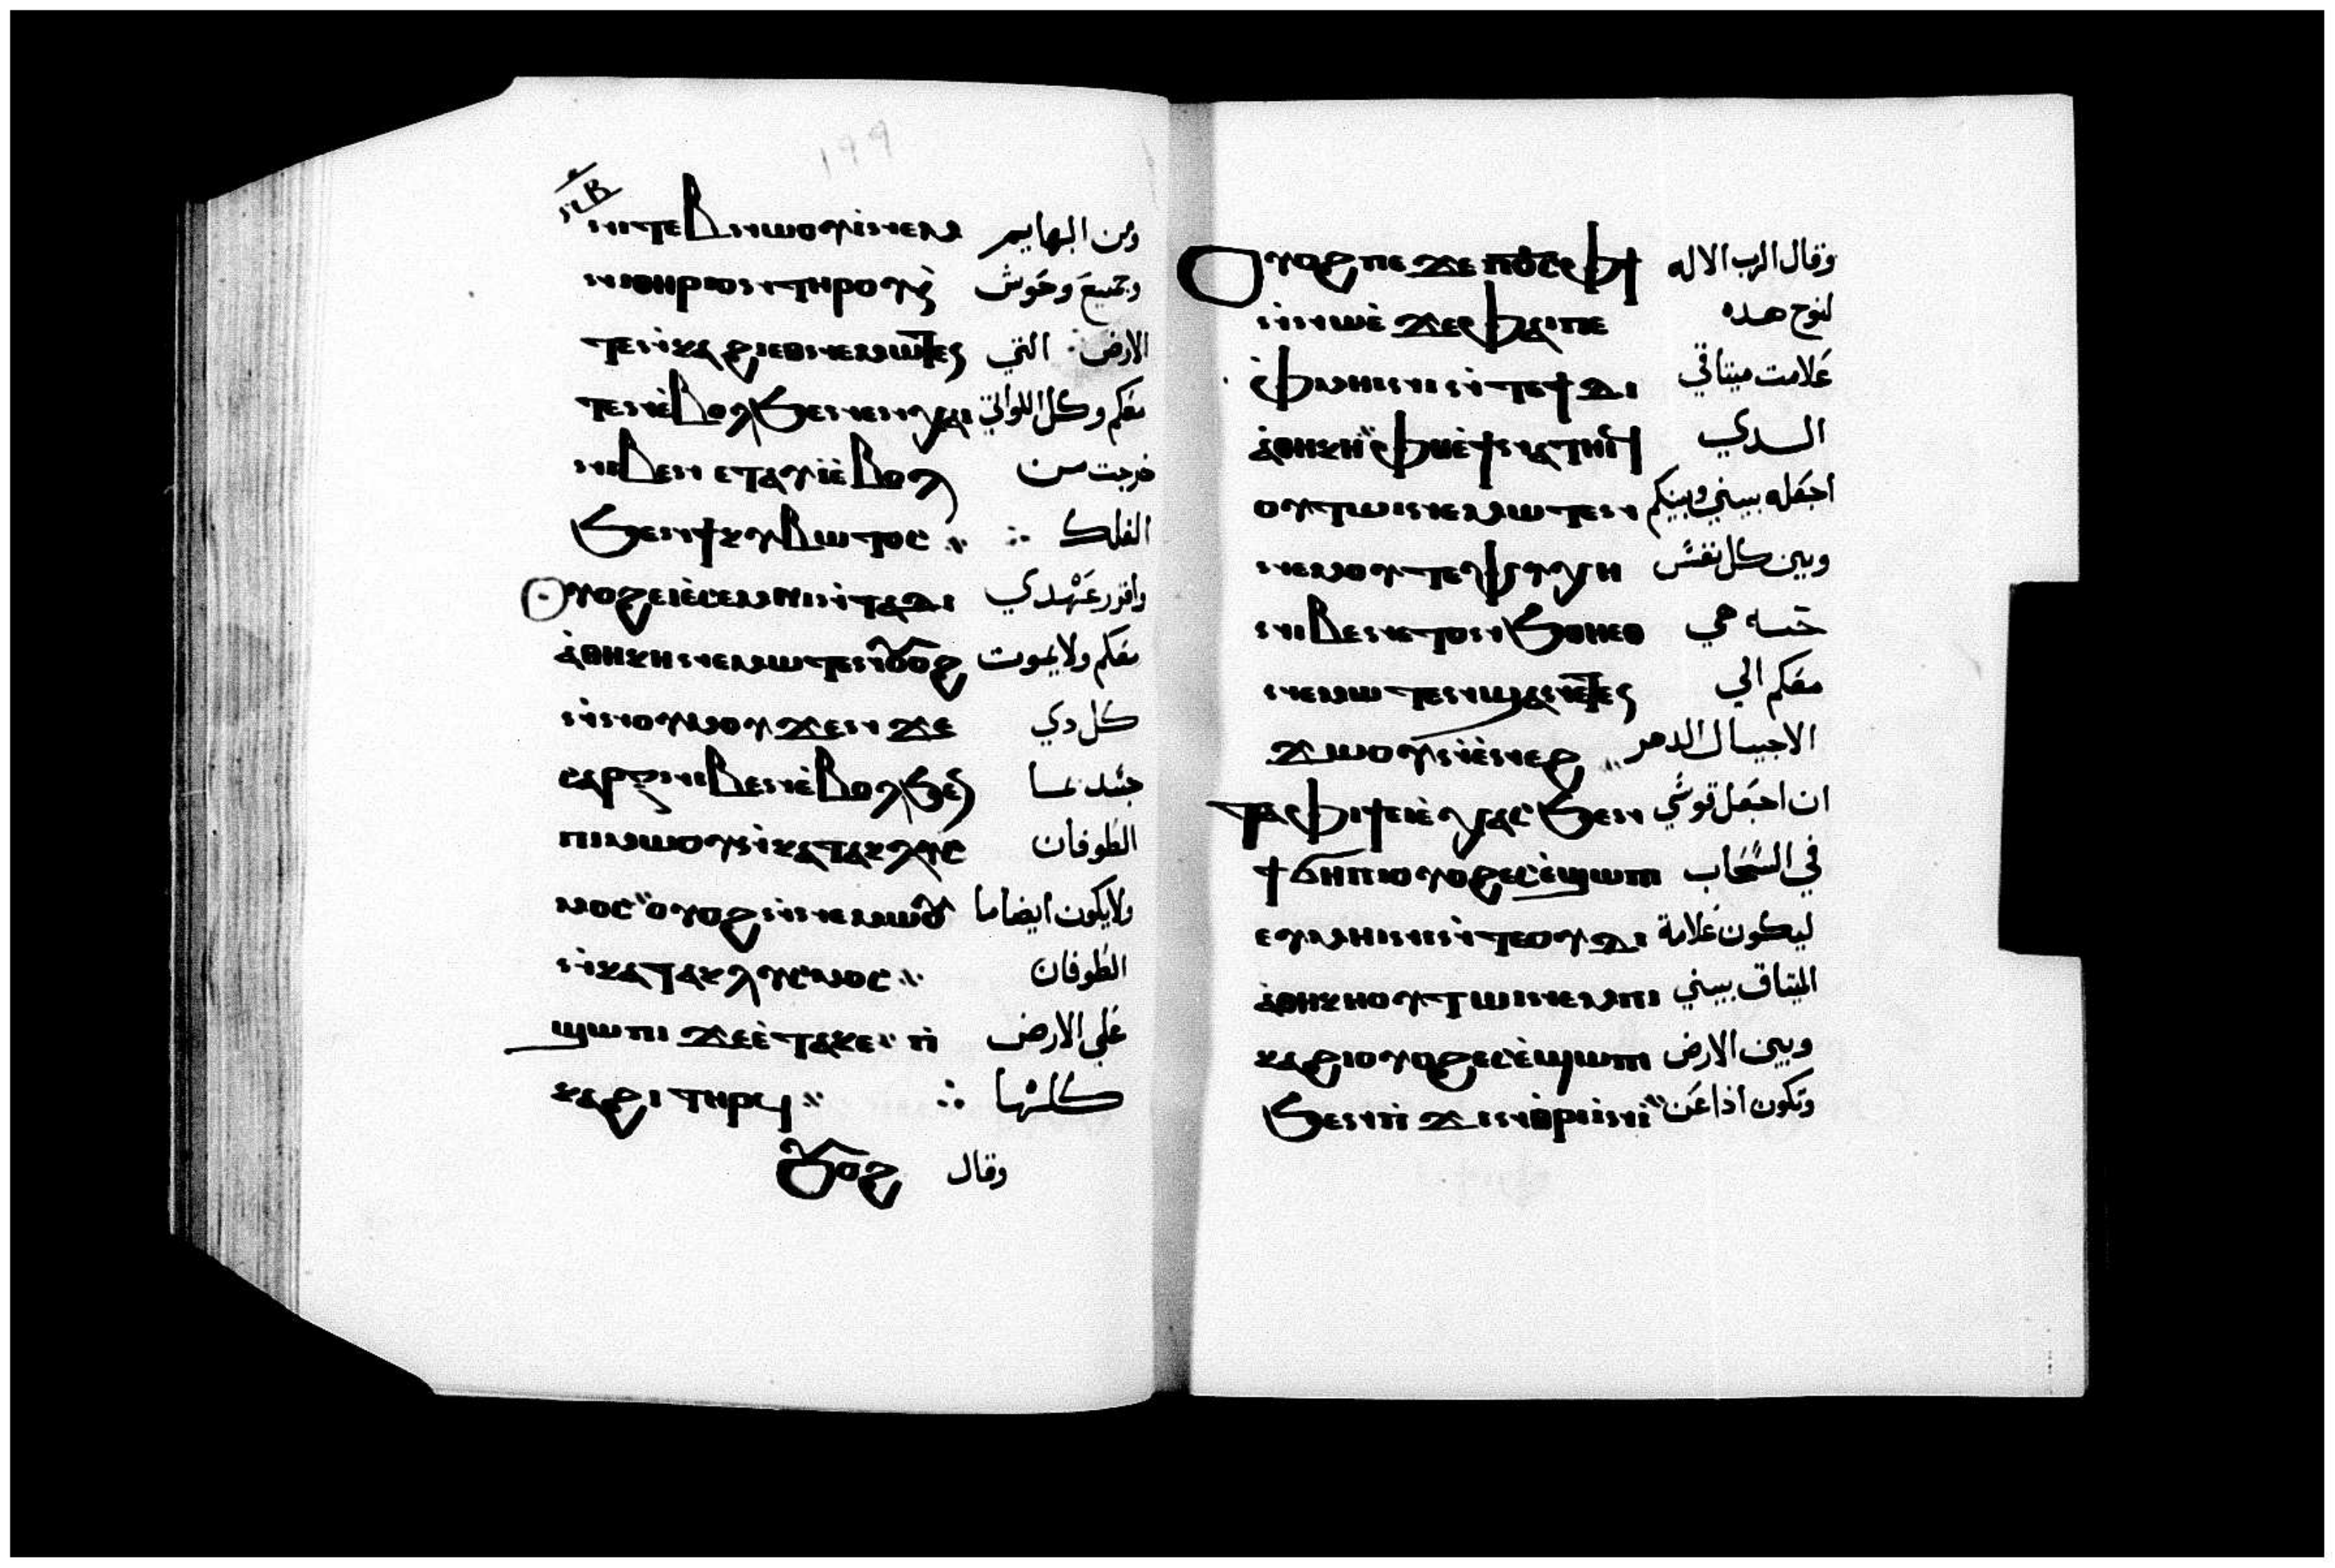 ١٩٩
ⲛⲓⲧⲉⲃⲛⲱⲟⲩⲓ̇ⲛⲉⲙ ومن البهايم
ⲛⲓⲑⲏⲣⲓⲟⲛⲧⲏⲣⲟⲩⲛ̇ وجميع وحوش
ⲧⲉⲡ̇ⲕⲁϩⲓⲉⲑⲛⲉⲙⲱⲧⲉⲛ الارض: التي
ⲧⲉⲛⲉ̇ⲃⲟⲗϧⲉⲛⲉⲛⲭⲁⲓ معكم وكل اللواتي
ⲛⲓⲃⲉⲛ ⲉⲧⲁⲩⲓ̇ⲉ̇ⲃⲟⲗ خرجت من
ϧⲉⲛϯⲕⲩⲃⲱⲧⲟⲥ الفلك
Ⲟⲩⲟϩⲉⲓⲉ̇ⲥⲉⲙⲛⲓⲛ̇ⲧⲁⲇⲓ واقرر عهدي
ⲁ̇ⲑⲏⲕⲏⲛⲉⲙⲱⲧⲉⲛⲟⲩⲟϩ معكم ولا يموت
ⲛ̇ⲛⲟⲩⲙⲟⲩ ϫⲉⲛ ϫⲉ كل دي
ⲥⲁⲣⲝⲛⲓⲃⲉⲛⲉ̇ⲃⲟⲗϧⲉⲛ جسد بما
ⲡⲓⲙⲱⲟⲩⲛ̇ⲕⲁⲧⲁⲕⲗⲩⲥ الطوفان
ⲙⲟⲥ ⲟⲩⲟϩⲛ̇ⲛⲉⲙⲱⲟⲩ ولايكون ايضا ما
ⲛ̇ⲕⲁⲧⲁⲕⲗⲩⲥⲙⲟⲥ الطوفان
ϣⲱⲡⲓ ϫⲉⲉ̇ⲧⲁⲕⲉ ⲡ̇ علي الارض
ⲕⲁϩⲓ ⲧⲏⲣϥ كلها
ⲟⲩⲟϩ وقال
Ⲟⲩⲟϩ ⲡⲉϫⲉ ⲡϭⲥ ⲫϯ وقال الرب الاله
ⲛ̇ⲛⲱⲉ̇ ϫⲉⲫⲁⲓⲡⲉ لنوح هده
ⲫ̇ⲙⲏⲓⲛⲓⲛ̇ⲧⲉϯⲇⲓ علامت ميثاقي
ⲁ̇ⲑⲏⲕⲏ ⲫⲏⲉ̇ϯⲛⲁⲧⲏⲓϥ الـدي
ⲟⲩⲧⲱⲓⲛⲉⲙⲱⲧⲉⲛ اجعله بيني وبينكم
ⲛⲉⲙⲟⲩⲧⲉⲯⲩⲭⲏ وبين كل نفس
ⲛⲓⲃⲉⲛⲉⲧⲟⲛϧⲑⲏⲉⲑ حيه هي
ⲛⲉⲙⲱⲧⲉⲛϣⲁⲛⲉⲛ معكم الي
ϫⲱⲟⲩⲛ̇ⲉ̇ⲛⲉϩ الاجيال الدهر
ⲧⲁⲫⲓϯⲉⲓⲉ̇ⲭⲁⲥ ϧⲉⲛ ان اجعل قوسي
ϯϭⲏⲡⲓⲟⲩⲟϩⲉⲥⲉ̇ϣⲱⲡⲓ في السحاب
ⲉⲩⲙⲏⲓⲛⲓⲛ̇ⲧⲉⲟⲩⲇⲓ ليكون علامة
ⲁ̇ⲑⲏⲕⲏⲟⲩⲧⲱⲓⲛⲉⲙⲡⲓ الميثاق بيني
ⲕⲁϩⲓⲟⲩⲟϩⲉⲥⲉ̇ϣⲱⲡⲓ وبين الارض
ϧⲉⲛⲡ̇ ϫⲓⲛⲑⲣⲓⲛ̇ وتكون اذا عن